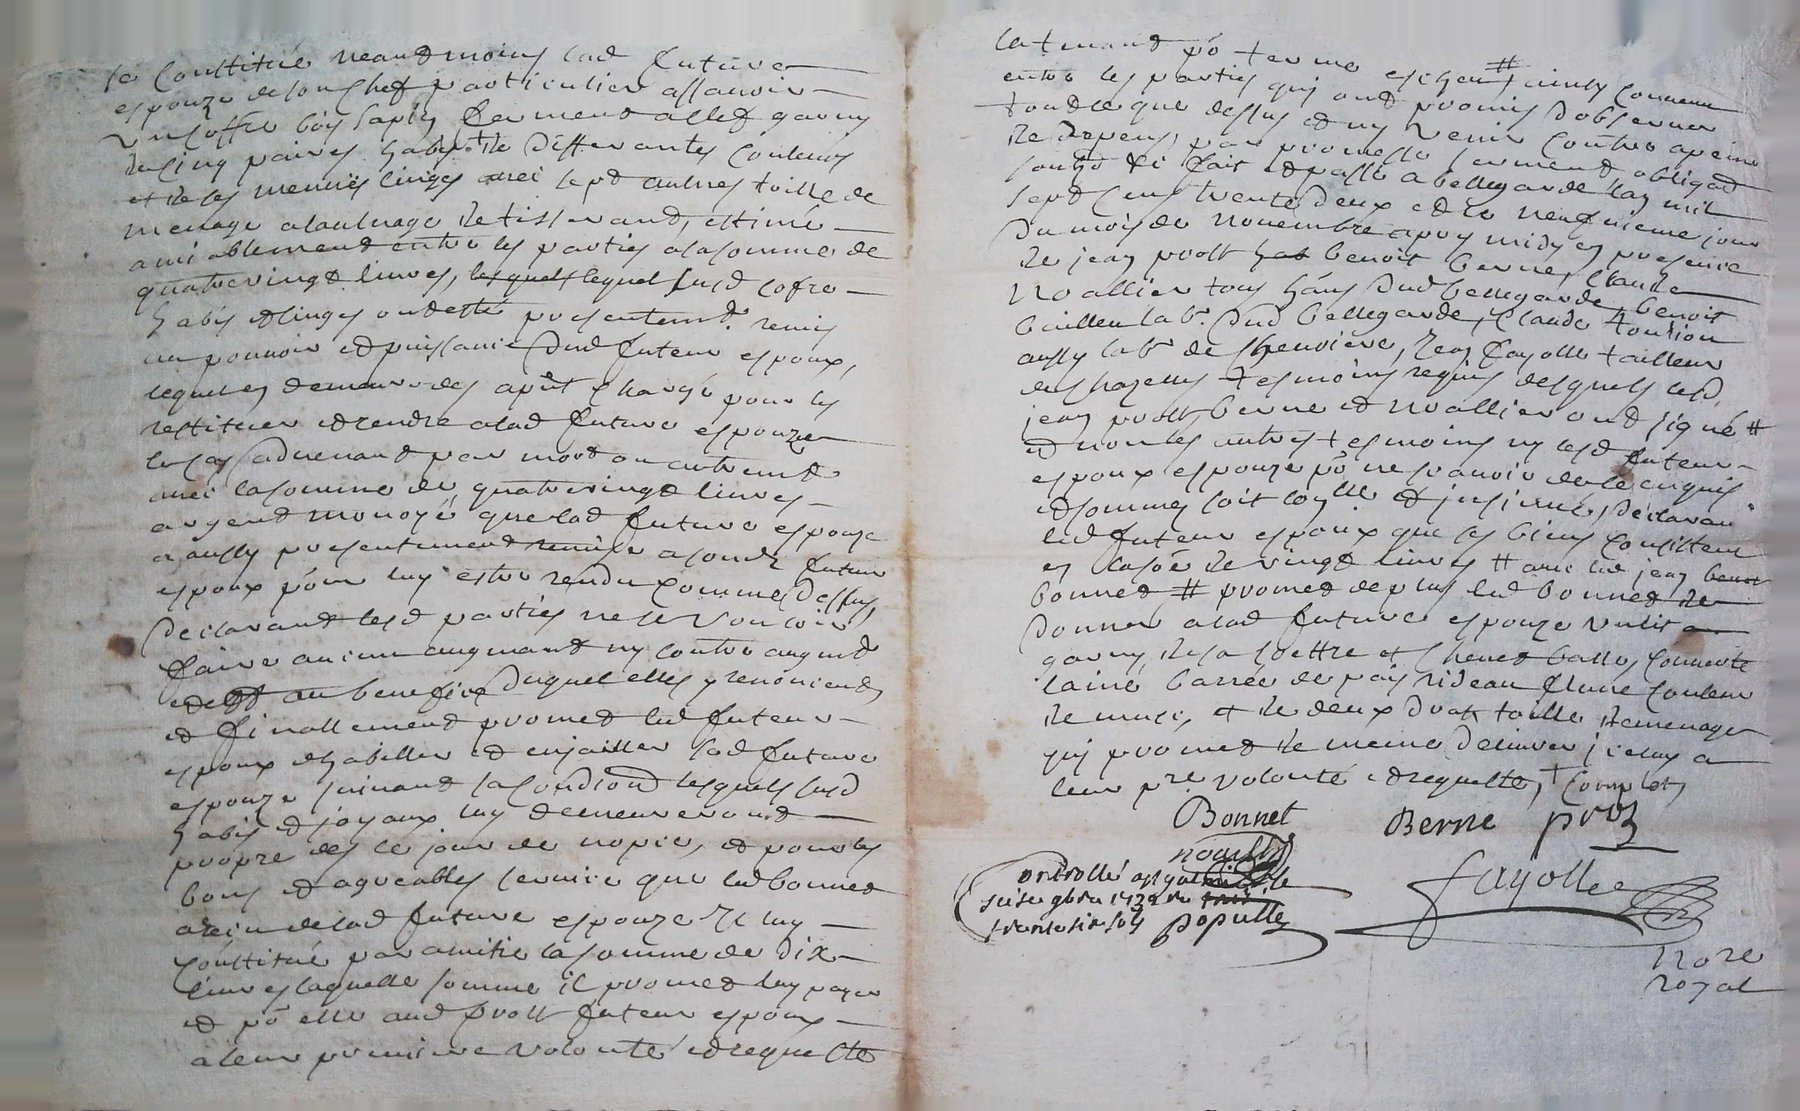 se Constitué neandmoins lad future
espouze de son Chef particulier assavoir
un coffre boys sapin fermend a clef garny
de cinq paires habis de differantes Couleurs
et de ses menues linges avec sept aulnes toille de
menage a laulnage de tisserand, estimé
amiablemend entre les parties a la somme de
quatrevingt livres, lesquels lequel susd cofre
habis et linges ond esté presentemd remis
au pouvoir et puissance dud futeur espoux,
lequel en demeure des apñt Chargé pour les
restituer et rendre a lad future espouze
le cas advenand par mord ou autremd
avec la somme de quatrevingt livres
argend monoyé que lad future espouze
a aussy presentemend remise a sondt futeur
espoux pour luy estre rendu comme dessus,
Declarand lesd parties ne se Vouloir
faire aucun augmand ny contre augmd
et au benefice duquel elles y renonciend
et finallemend promed led futeur
espoux d'habiller et enjailler lad future
espouze suivand sa Condiond lesquels susd
habis et joyaux luy demeurerond
propre des le jour de nopce, et pour les
bons et agreables service que led bonned
a reçu de lad future espouze Il luy
Constitué par amitié la somme de dix
livres laquelle somme il promed luy payer
et pō elle aud prost futeur espoux
a leur premiere volonté et requeste
latmand pō terme escheu # ainsy Convenu
entre les parties qui ond promis d'observer
tout ce que dessus et ny venir Contre a peine
de depens, par promesse sermend obligad
soubz de fait et passé a bellegarde l'an mil
sept Cens trente deux et le neufvieme jour
du mois de novembre apres midy en presence
de jean prost benoit berne, Claude
noallier tous habs dud bellegarde, benoit
bailleu labr. dud bellegarde, Claude
aussy labr de Chenviere, Jean fayolle tailleur
de Chazelles tesmoins requis desquels led.
jean prost berne et noallier ond signé #
et non les autres tesmoins ny lesd futeur
espoux espouze pō ne sçavoir de ce enquis
et sommes soit Controllé et insinué, Declarand
led futeur espoux que ses biens Consistent
en la soē de vingt livres # avec led jean benoi
bonned # promed de plus led bonned de
donner a lad future espouze un lit
garny de sa Couverte
laine barrée de pays rideau Couleur
de musc, et de deux draps toille de menage
qui promed de meme delivrer jceluy a
leur pre volonté et requeste, + Complet
Bonnet
Berne prost
noallier
fayolle
Controllé a
seise 9bre 1732 Re
trente six sols populle
No.re
royal